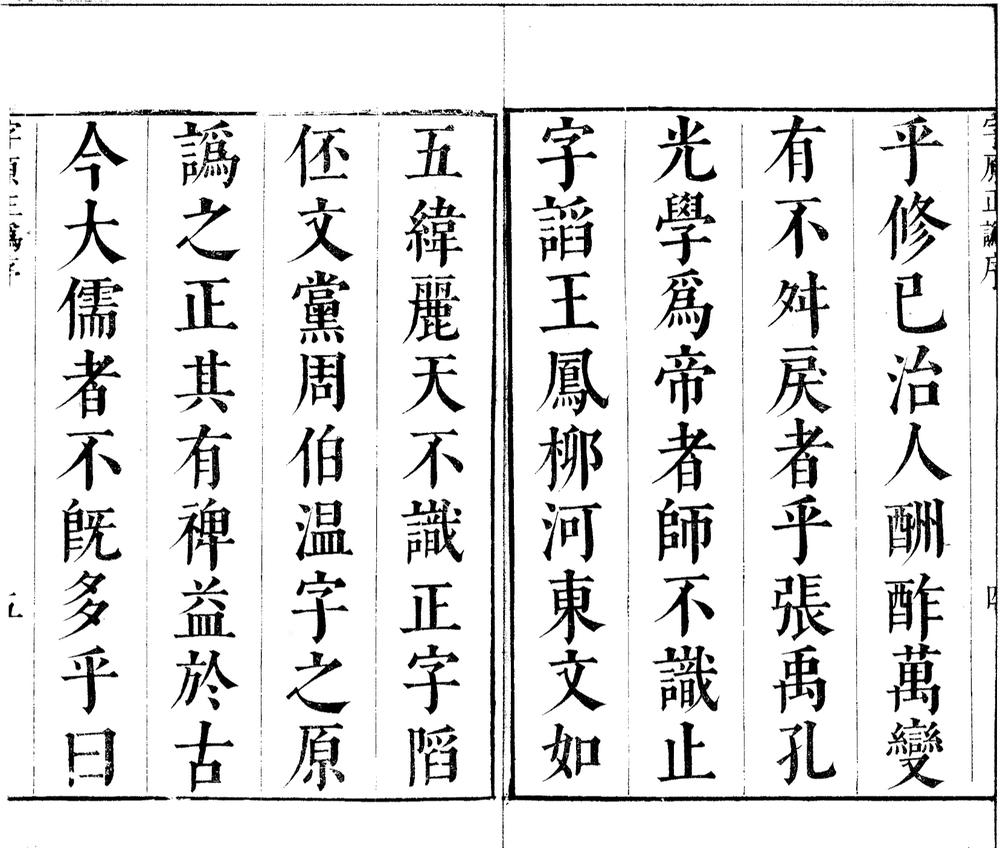 字原正譌序 四
乎修已治人酬酢萬變
有不舛戾者乎張禹孔
光學爲帝者師不識止
字謟王鳳柳河東文如
五緯麗天不識正字陷
伾文黨周伯温字之原
譌之正其有裨益於古
今大儒者不旣多乎曰
字原正譌序 五